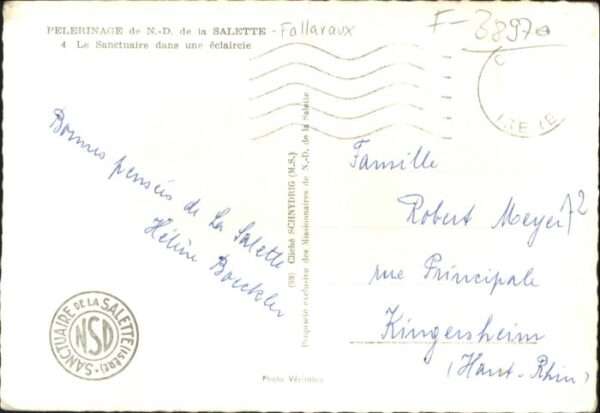 PELERINAGE de N.-D. de la SALETTE - Fallavaux
4 Le Sanctuaire dans une éclaircie
F-38970
Bonnes pensées de La Salette
Hélène Boeckler
(99) Cliché SCHNYDRIG (M.S.)
Propriété exclusive des Missionnaires de N.-D. de la Salette
Famille
Robert Meyer 72
rue Principale
Kingersheim
(Haut-Rhin)
SANCTUAIRE DE LA SALETTE (Isère)
NSD
Photo Véritable